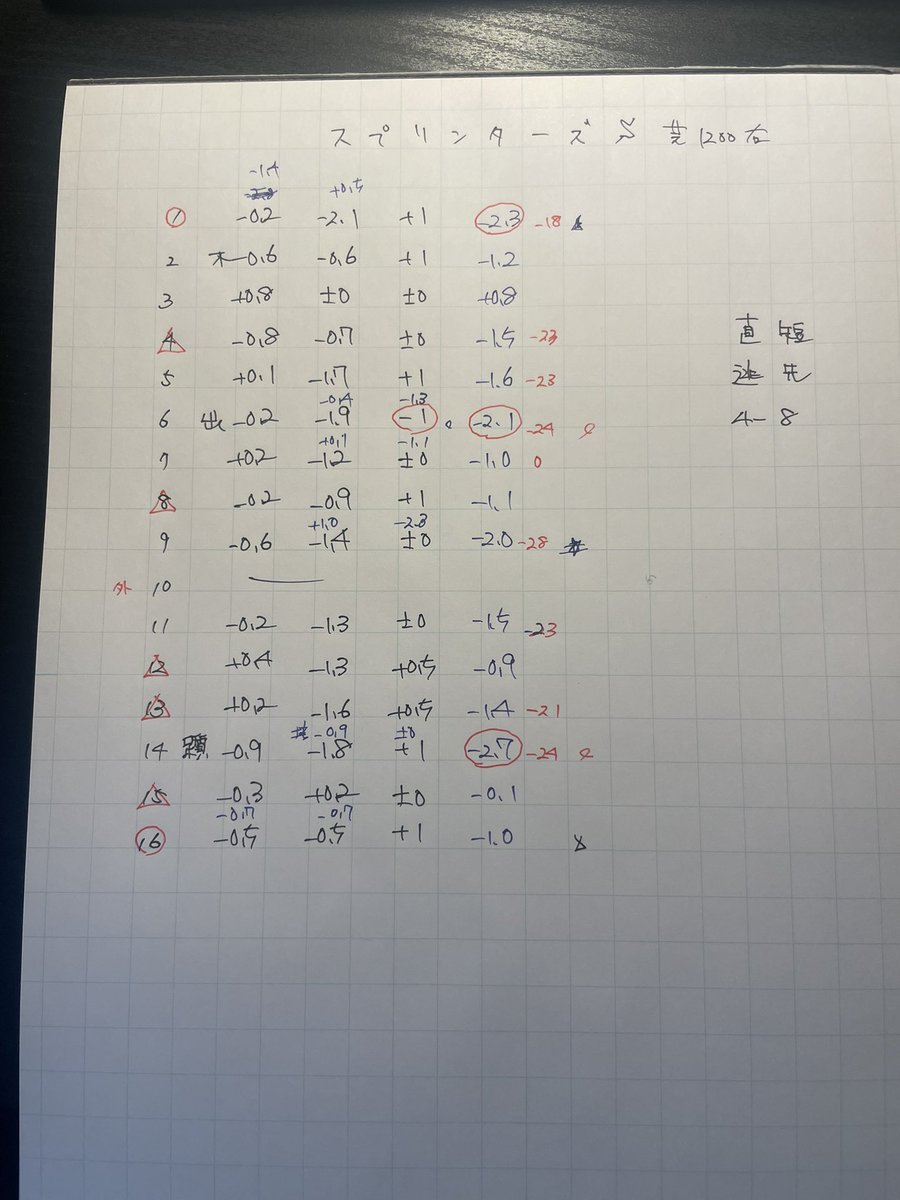 スプリンターズS 芝1200右
-1.4
+0.5
1 -0.2 -2.1 +1 -2.3 -18
2 -0.6 -0.6 +1 -1.2
3 +0.8 ±0 ±0 +0.8
4 -0.8 -0.7 ±0 -1.5 -23
直短
5 +0.1 -1.7 +1 -1.6 -23
逃先
-0.4 -1.3
6 出 -0.2 -1.9 -1 -2.1 -24
4-8
+0.7 -1.1
7 +0.2 -1.2 ±0 -1.0 0
8 -0.2 -0.9 +1 -1.1
+1.0 -2.3
9 -0.6 -1.4 ±0 -2.0 -28
外 10
11 -0.2 -1.3 ±0 -1.5 -23
12 +0.4 -1.3 +0.5 -0.9
13 +0.2 -1.6 +0.5 -1.4 -21
-0.9 ±0
14 -0.9 -1.8 +1 -2.7 -24
15 -0.3 +0.2 ±0 -0.1
-0.7 -0.7
16 -0.5 -0.5 +1 -1.0